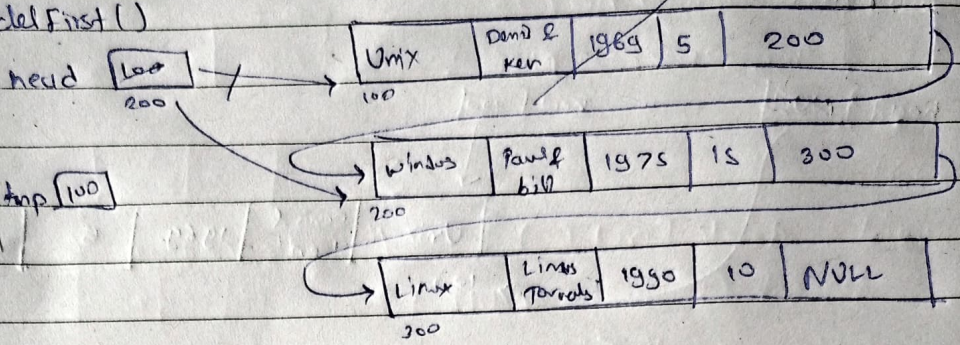 delFirst()
head 100 Unix Denis & Ken 1969 5 200
200 100
tmp 100 Windos Paul & bill 1975 15 300
200
Linux Linus Torvals 1990 10 NULL
300